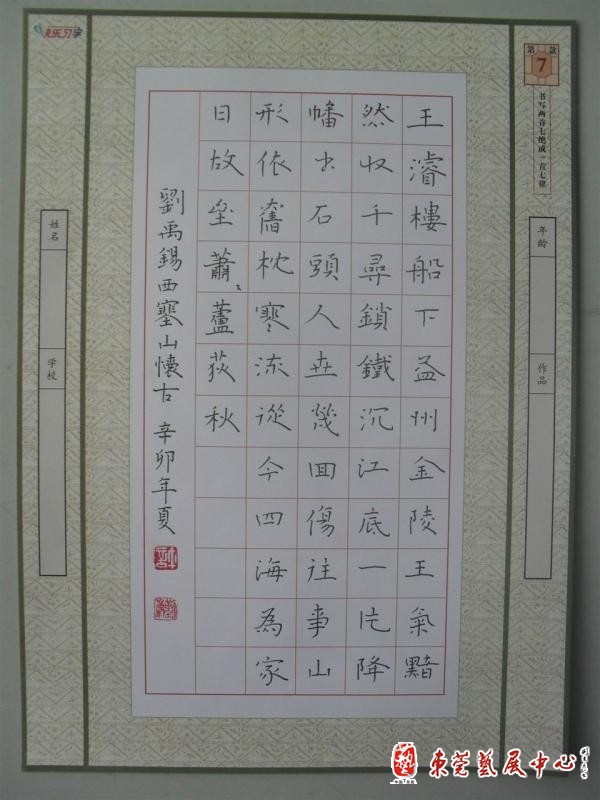 快乐习字
第7款
书写两首七绝或一首七律
年龄
作品
王濬樓船下益州金陵王氣黯
然收千尋鎖鐵沉江底一片降
幡出石頭人世幾回傷往事山
形依舊枕寒流從今四海為家
日故垒蕭〻蘆荻秋
劉禹錫西塞山懷古 辛卯年夏
姓名
学校
東莞藝展中心